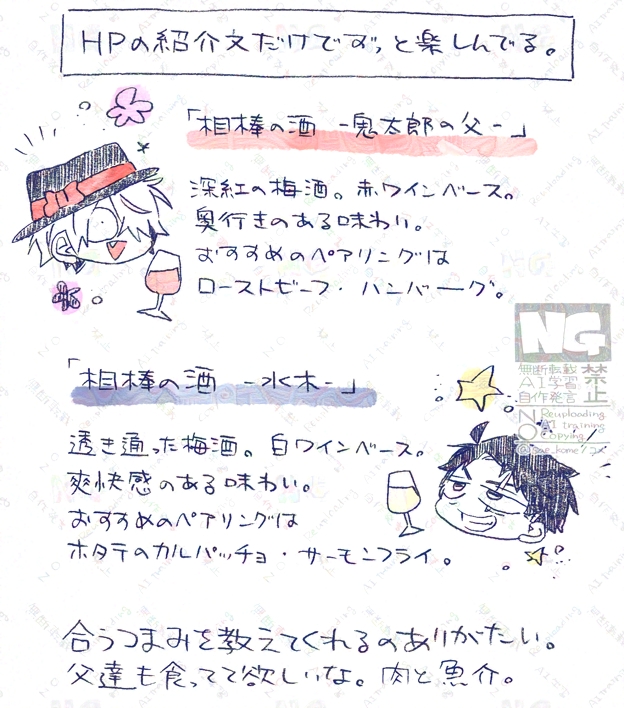 HPの紹介文だけでずっと楽しんでる。
「相棒の酒 -鬼太郎の父-」
深紅の梅酒。赤ワインベース。
奥行きのある味わい。
おすすめのペアリングは
ローストビーフ・ハンバーグ。
「相棒の酒 -水木-」
透き通った梅酒。白ワインベース。
爽快感のある味わい。
おすすめのペアリングは
ホタテのカルパッチョ・サーモンフライ。
合うつまみを教えてくれるのありがたい。
父達も食ってて欲しいな。肉と魚介。
NG
無断転載
AI学習
自作発言
禁止
NO
Reuploading
AI training
Copying